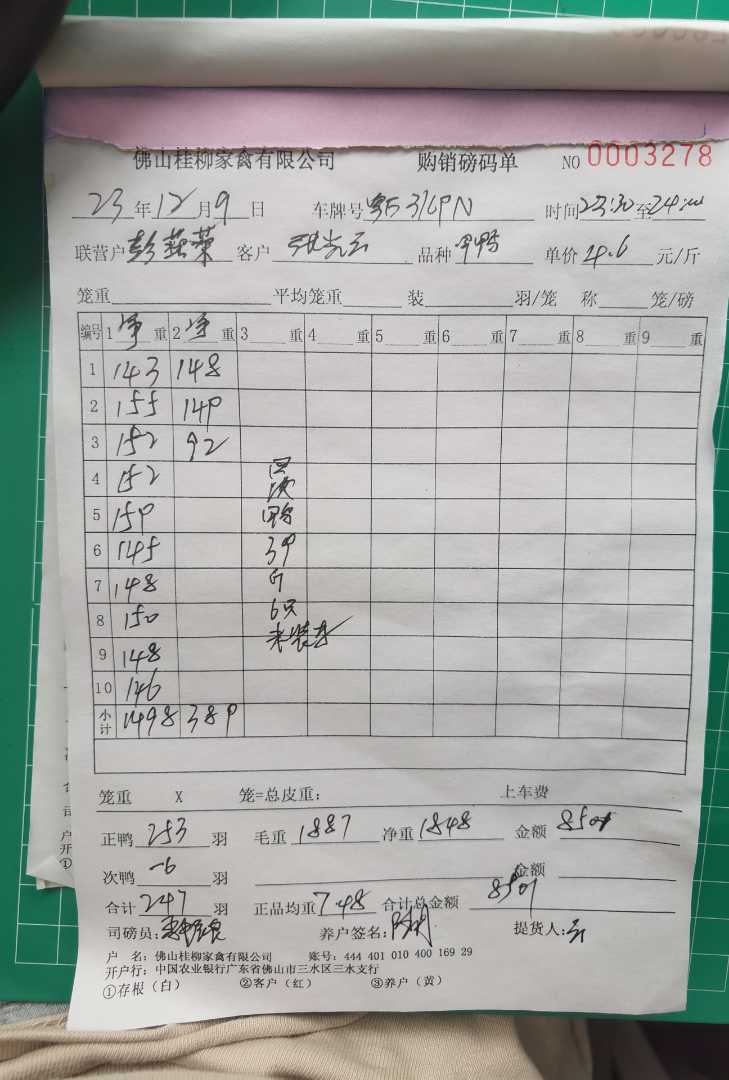 佛山桂柳家禽有限公司 购销磅码单 NO 0003278
23年12月9日 车牌号 319N 时间23:30至24:00
联营户彭燕荣 客户 张光云 品种 单价4.6元/斤
笼重 平均笼重 装 羽/笼 称 笼/磅
编号 1净重 2净重 3 重 4 重 5 重 6 重 7 重 8 重 9 重
1 143 148
2 155 149
3 152 92
4 152 回
次
5 159 鸭
6 145 39
7 148 斤
8 150 6只
9 148 未装车
10 146
小计 1498 389
笼重 X 笼=总皮重: 上车费
正鸭 253 羽 毛重 1887 净重 1848 金额 8501
次鸭 -6 羽 金额
合计 247 羽 正品均重 7.48 合计总金额 8501
司磅员: 养户签名: 提货人:云
户 名: 佛山桂柳家禽有限公司 账号: 444 401 010 400 169 29
开户行: 中国农业银行广东省佛山市三水区三水支行
①存根(白) ②客户(红) ③养户(黄)